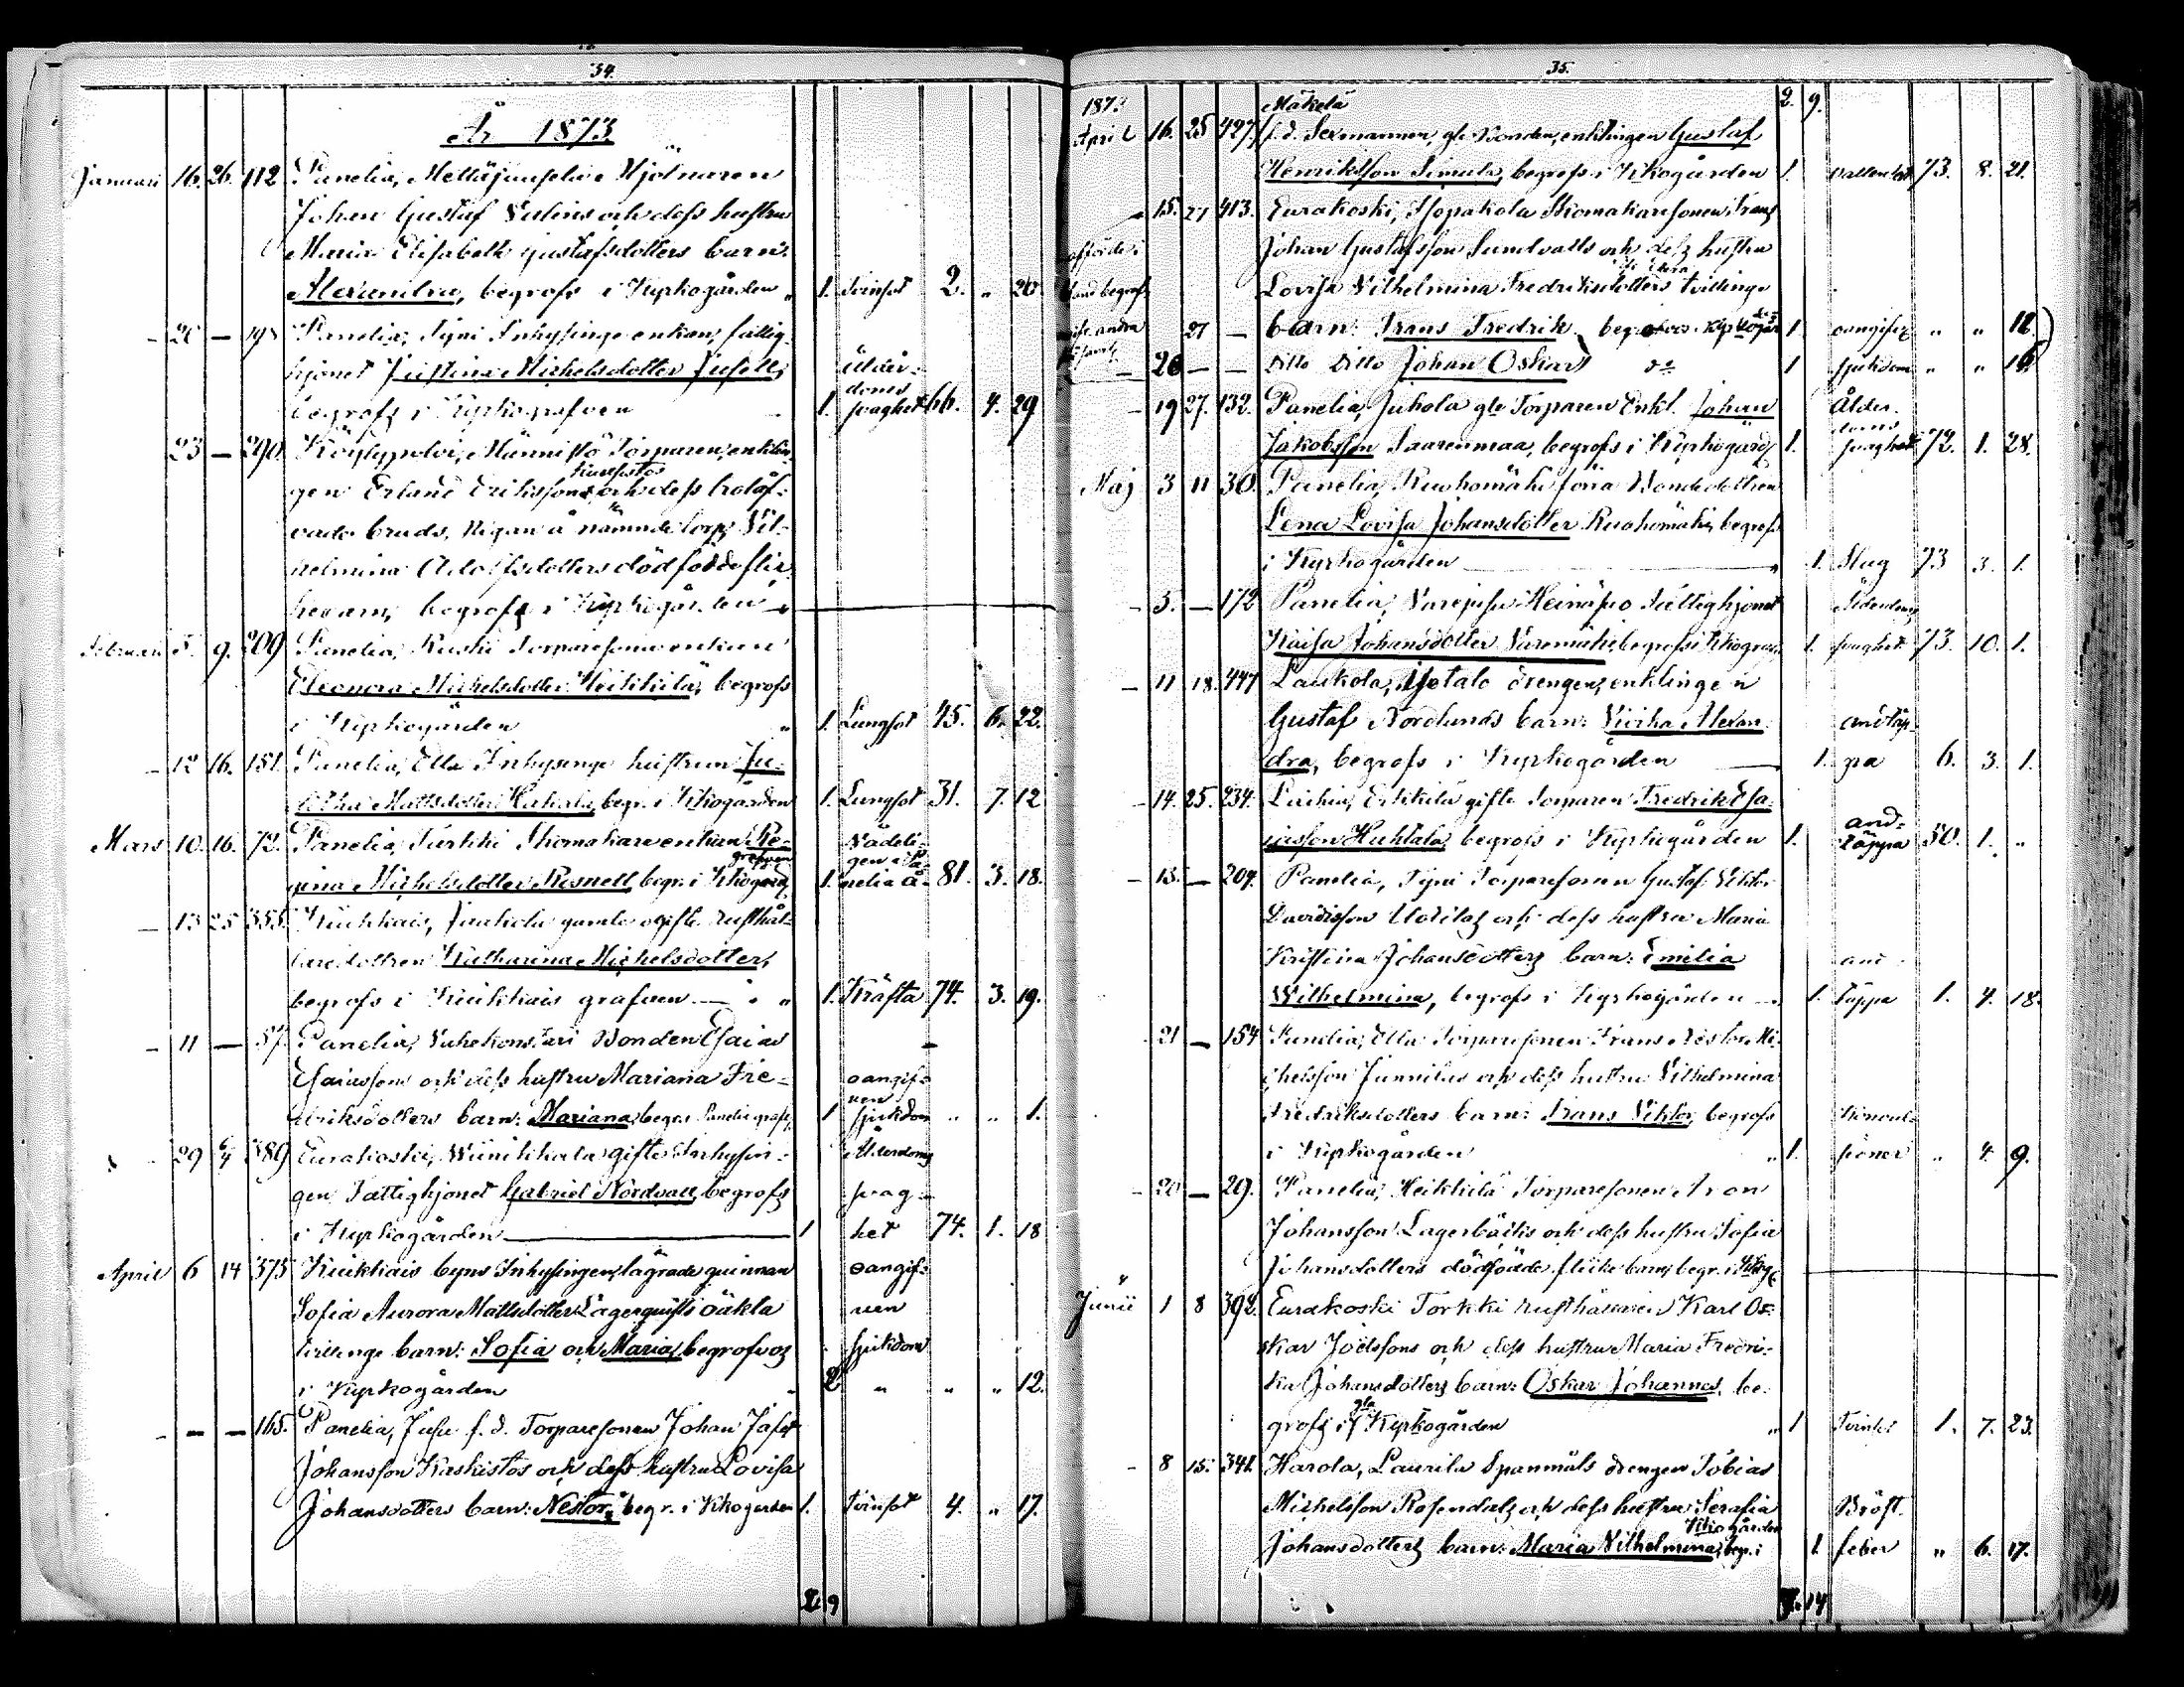 34.
År 1873.
Januari 16. 26. 112 Panelia, Mjölnaren
Johan Gustaf och dess hustru
Maria Elisabeth Gustafsdotters barn:
Alexandra, begrofs i Kyrkogården „ 1. Tvinsot 2. „ 20
– 20 — Panelia, Tyni Inhysinge enkan, fattig-
hjonet Justina Michelsdotter Ålder-
doms
begrofs i Kyrkografven 1. svaghet 66. 4. 29
23 — 290. Köylypolvi, Männistö Torparen, enklin-
gen Erland Erikssons och dess trolof-
vade bruds, Pigan å nämnde torp, Vil-
helmina Adolfsdotters dödfödde flic-
kebarn, begrofs i Kyrkogården
Februari 5. 9. 209 Panelia, Ruski Torparesonaenkan
Eleonora Michelsdotter Heikkilä, begrofs
i Kyrkogården „ 1. Lungsot 45. 6. 22.
– 12 16. 151. Panelia, Ella Inhysinge hustrun
Mattsdotter begr. i Kkogården 1. Lungsot 31. 7. 12
Mars 10. 16. 72. Panelia, Turkki Skomakareenkan Re-
grafven
gina Michelsdotter begr. i 1. 81. 3. 18.
– 13 25 355. Kiukkais, Jaakola gamla ogifta rusthål-
laredottren Katharina Michelsdotter,
begrofs i Kiukkais grafven — „ 1. Kräfta 74. 3. 19.
– 11 — 57. Panelia, Bonden Esaias
Esaiassons och dess hustru Mariana Fre- oangif-
ven
driksdotters barn: Mariana, begr. i Panelia grafv, 1 sjukdom „ „ 1.
29 6/4 389 Eurakoski, Wiinikkala gifte Inhysin- Ålderdoms
gen Fattighjonet Gabriel Nordvall, begrofs svag-
i Kyrkogården 1 het 74. 1. 18
April 6 14 375 Kiukkais byns Inhysingen, lägrade quinnan oangif-
Sofia Aurora Mattsdotter Lagerquists oäkta ven
tvillinge barn: Sofia och Maria, begrofvos sjukdom
i Kyrkogården 2 „ „ „ 12.
– – — 165. Panelia, f. d. Torparesonen Johan Josef
Johansson Kaskistos och dess hustru Lovisa
Johansdotters barn: Nestor, begr. i Kkogården 1. Tvinsot 4. „ 17.
2 9
35.
1873 Mäkelä 2. 9.
April 16. 25 427. f. d. Sexmannen, gle Bonden, enklingen Gustaf
Henriksson Simula, begrofs i Kkogården 1. vattusot 73. 8. 21.
– 15. 27 413. Eurakoski, Isopakola Skomakaresonen, Frans
Johan Gustafsson Sundvalls och dess hustru
Lovisa Vilhelmina Fredriksdotters tvillinge
27 — barn: Frans Fredrik, 1 oangifven „ „ 12.
– 28 — — Ditto Ditto Johan Oskar do 1 sjukdom „ „ 16
– 19 27. 132. Panelia, Juhola gle Torparen Enkl. Johan Ålder-
doms
Jakobsson Saarenmaa, begrofs i Kyrkogård 1. svaghet 72. 1. 28.
Maj 3 11 30. Panelia, Ruohomäki förra Bondedottren
Lena Lovisa Johansdotter Ruohomäki, begrofs
i Kyrkogården „ 1. Slag 73 3. 1.
– 5. — 172 Panelia, Heinäsuo Fattighjonet Ålderdoms
Kaisa Johansdotter begrofs i 1. svaghet 73. 10. 1.
– 11 18. 447 Laukola, Isotalo drengen, enklingen
Gustaf Nordlunds barn: Alexan- andtäp-
dra, begrofs i Kyrkogården 1. pa 6. 3. 1.
– 14. 25. 234. Erkkilä gifte Torparen Fredrik Esa- and-
iasson Huhtala, begrofs i Kyrkogården 1. täppa 50. 1. „
– 13. — 204. Panelia, Tyni Torparesonen Gustaf Viktor
Davidsson och dess hustru Maria
Kristina Johansdotters barn: Emilia and-
Wilhelmina, begrofs i Kyrkogården 1. täppa 1. 4. 18.
21 — 154 Panelia, Ella Torparesonen Frans Nestor Mi-
chelsson Junnilas och dess hustru Vilhelmina
Fredriksdotters barn: Frans Viktor, begrofs
i Kyrkogården „ 1. „ 4. 9.
– 20 — 29. Panelia, Heikkilä Torparesonen Aron
Johansson Lagerbäcks och dess hustru Sofia
Johansdotters dödfödde flickebarn, begr. i
Junii 1 8 392. Eurakoski Torkki rusthållaren Karl Os-
kar Joelssons och dess hustru Maria Fredri-
ka Johansdotters barn: Oskar Johannes, be-
gla
grofs i Kyrkogården „ 1 Tvinsot 1. 7. 23.
– 8 15. 341. Harola, Laurila Spanmåls drengen Tobias
Michelsson Rosendals och dess hustru Serafia Bröst-
Kkogården
Johansdotters barn: Maria Vilhelmina, begr. i 1. feber „ 6. 17.
14